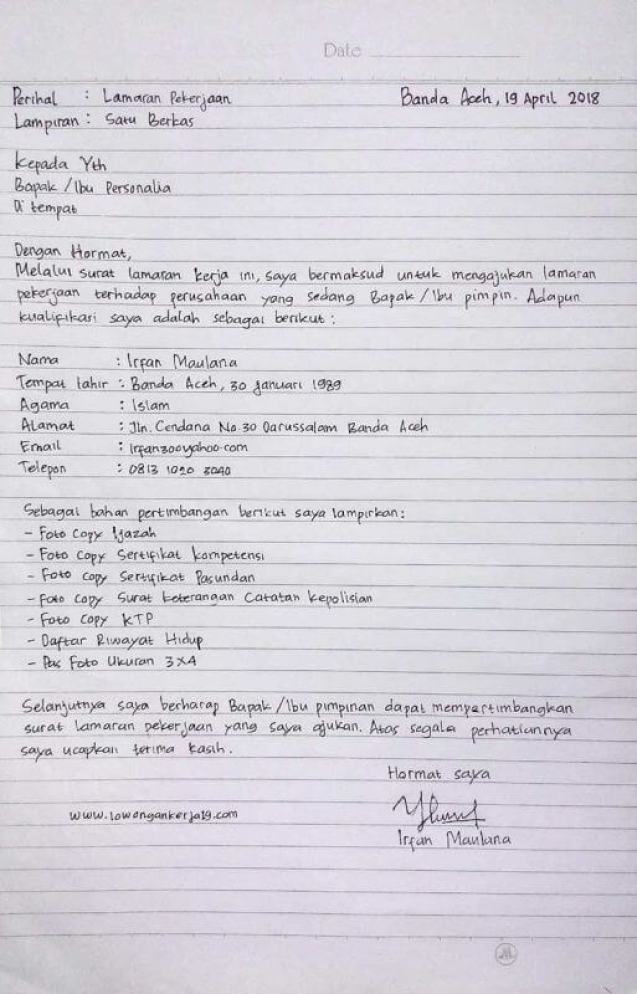 Date
Perihal : Lamaran Pekerjaan Banda Aceh, 19 April 2018
Lampiran : Satu Berkas
Kepada Yth
Bapak / Ibu Personalia
Di tempat
Dengan Hormat,
Melalui surat lamaran kerja ini, saya bermaksud untuk mengajukan lamaran
pekerjaan terhadap perusahaan yang sedang Bapak / Ibu pimpin. Adapun
kualifikasi saya adalah sebagai berikut :
Nama : Irfan Maulana
Tempat lahir : Banda Aceh, 30 Januari 1989
Agama : Islam
Alamat : Jln. Cendana No 30 Darussalam Banda Aceh
Email : Irfan200yahoo.com
Telepon : 0813 1020 3040
Sebagai bahan pertimbangan berikut saya lampirkan :
- Foto Copy Ijazah
- Foto Copy Sertifikat Kompetensi
- Foto Copy Sertifikat Pasundan
- Foto Copy Surat Keterangan Catatan Kepolisian
- Foto Copy KTP
- Daftar Riwayat Hidup
- Pas Foto Ukuran 3x4
Selanjutnya saya berharap Bapak / Ibu pimpinan dapat mempertimbangkan
surat lamaran pekerjaan yang saya ajukan. Atas segala perhatiannya
saya ucapkan terima kasih.
Hormat saya
www.lowongankerja19.com
Irfan Maulana